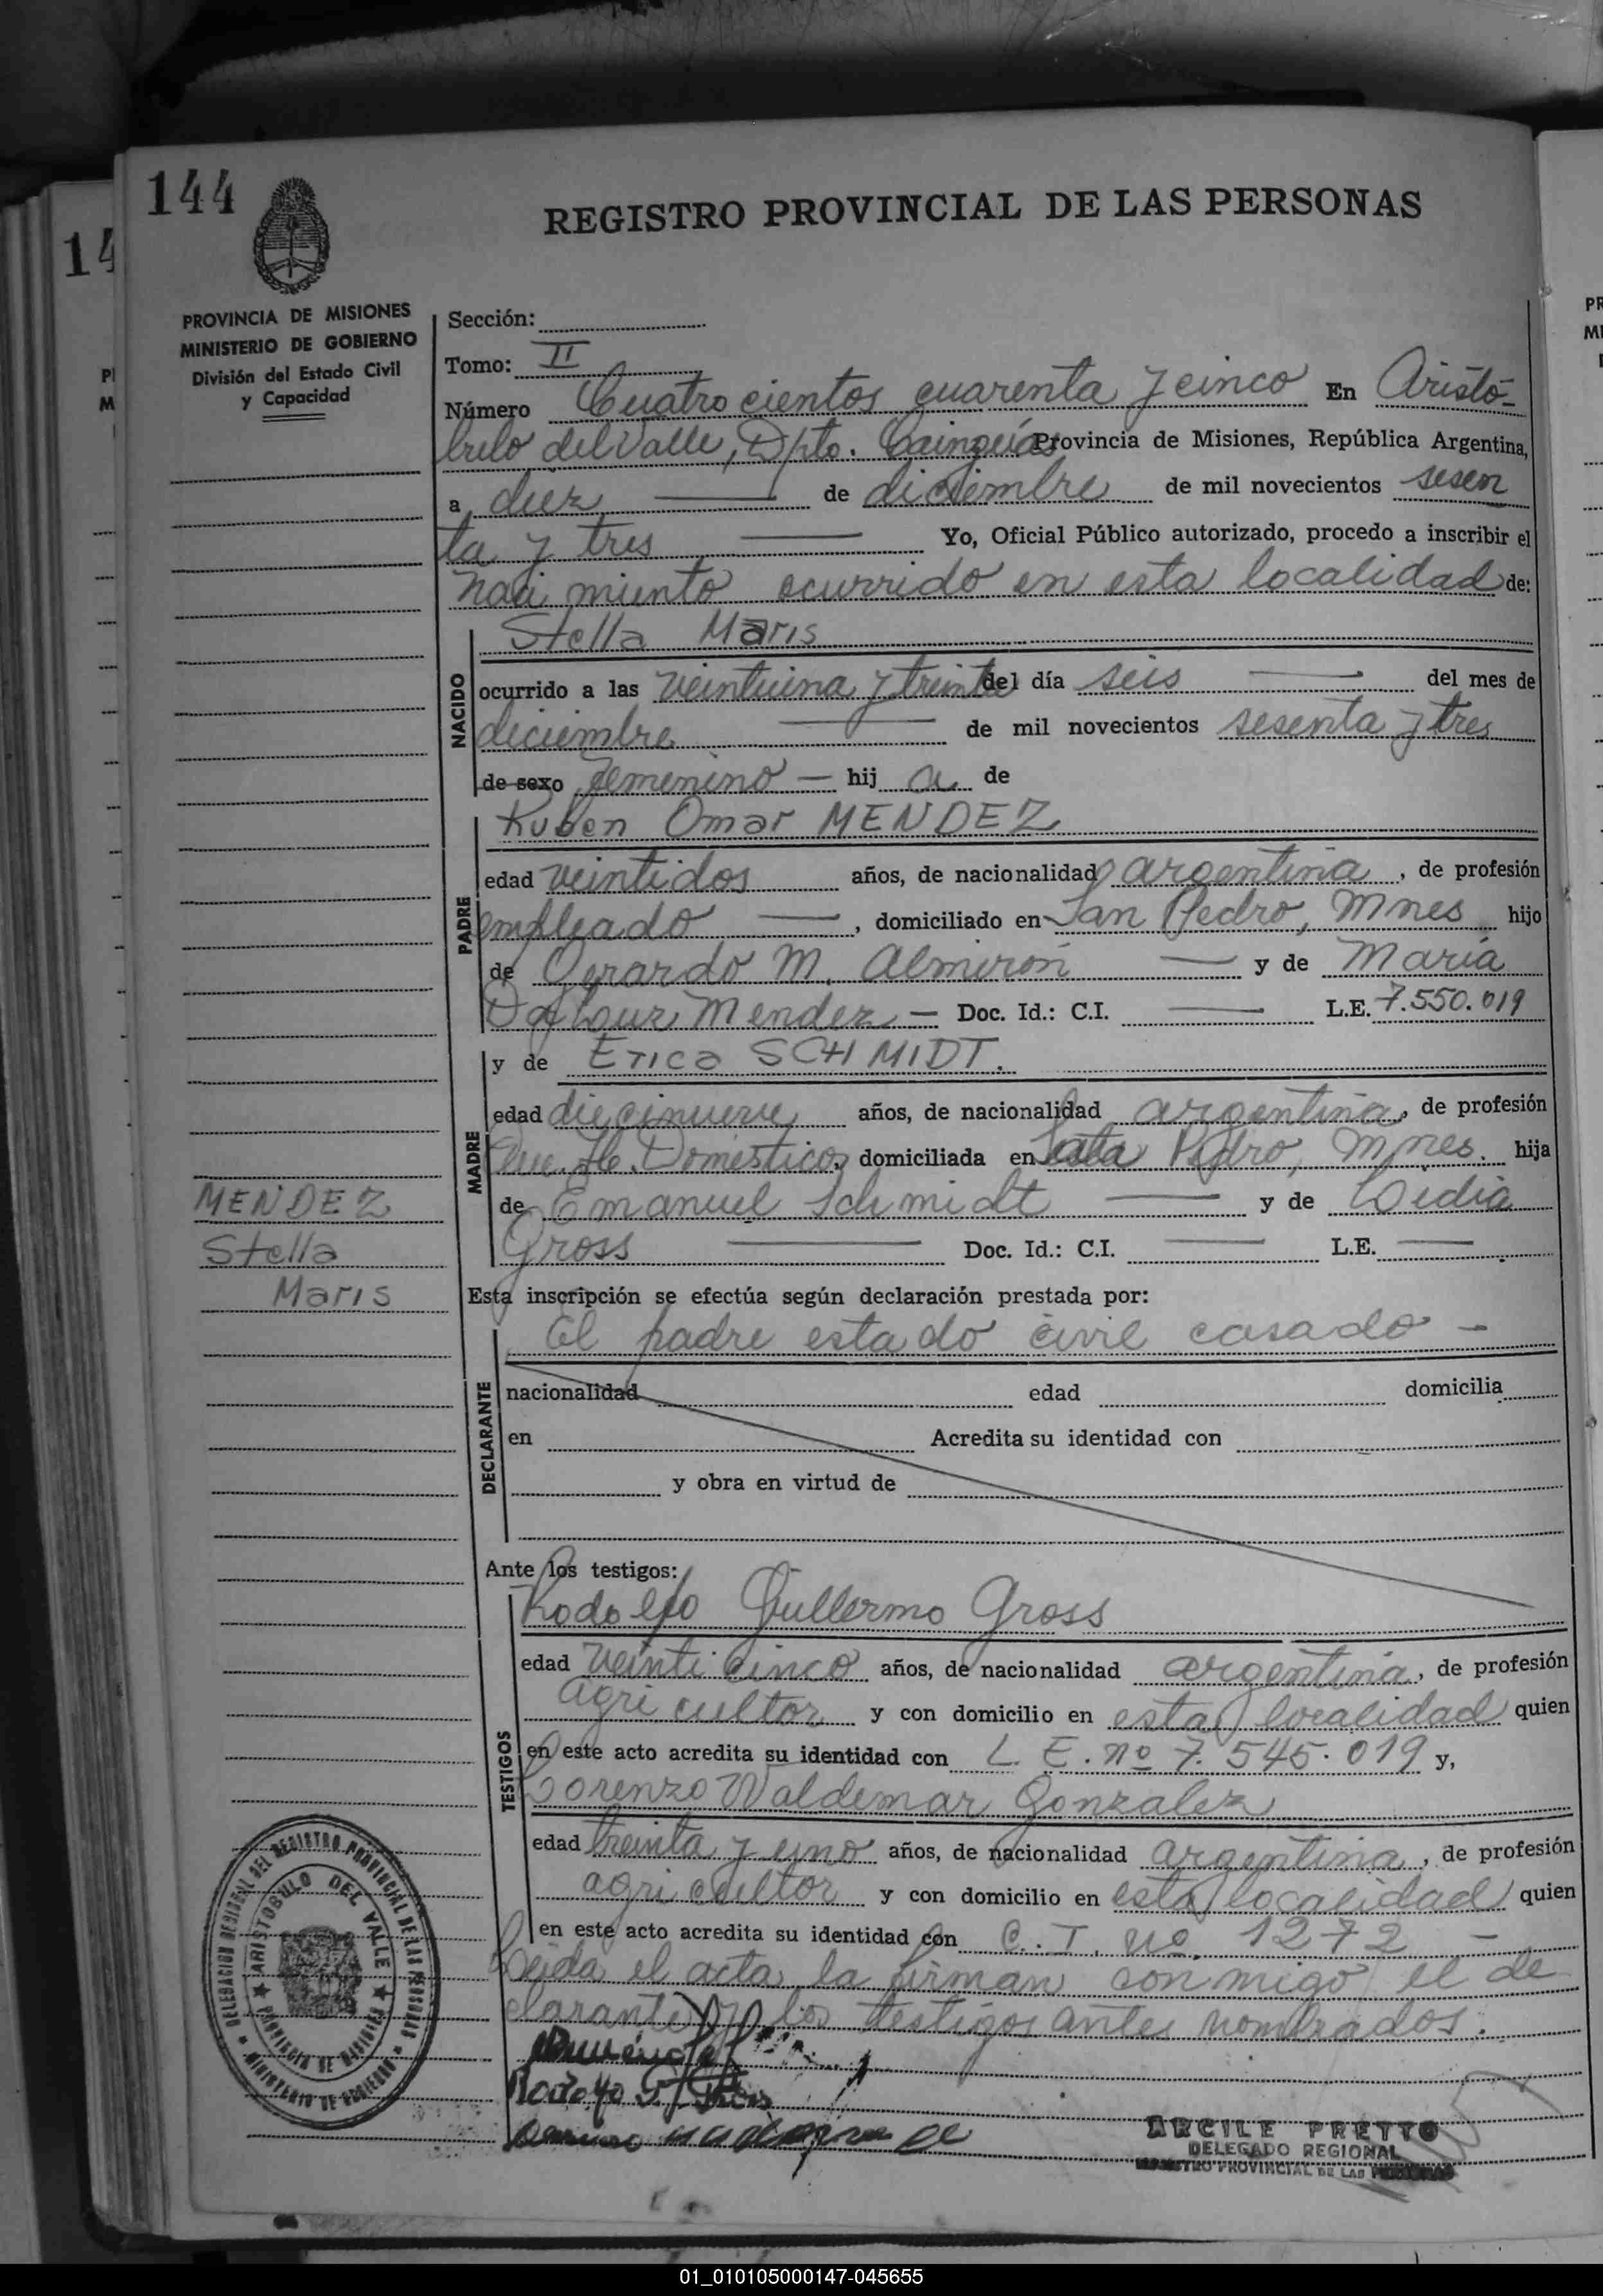 144
14
REGISTRO PROVINCIAL DE LAS PERSONAS
PROVINCIA DE MISIONES
MINISTERIO DE GOBIERNO
División del Estado Civil
y Capacidad
Sección:
Tomo: II
Número Cuatrocientos cuarenta y cinco En Aristó-
bulo del Valle, Dpto. Cainguás Provincia de Misiones, República Argentina,
a diez de diciembre de mil novecientos sesen
ta y tres Yo, Oficial Público autorizado, procedo a inscribir el
nacimiento ocurrido en esta localidad de:
Stella Maris
NACIDO
ocurrido a las veintiuna y treinta del día seis del mes de
diciembre de mil novecientos sesenta y tres
de sexo femenino — hij a de
Ruben Omar MENDEZ
PADRE
edad veintidos años, de nacionalidad argentina, de profesión
empleado, domiciliado en San Pedro, Mnes hijo
de Gerardo M. Almirón y de María
Mendez — Doc. Id.: C.I. L.E. 7.550.019
y de Erica SCHMIDT.
MADRE
edad diecinueve años, de nacionalidad argentina, de profesión
Domesticos, domiciliada en Pedro, Mnes. hija
de Emanuel Schmidt y de Lidia
Gross Doc. Id.: C.I. L.E.
MENDEZ
Stella
Maris
Esta inscripción se efectúa según declaración prestada por:
El padre estado civil casado —
DECLARANTE
nacionalidad edad domicilia
en Acredita su identidad con
y obra en virtud de
Ante los testigos:
Rodolfo Guillermo Gross
TESTIGOS
edad veinticinco años, de nacionalidad argentina, de profesión
agricultor y con domicilio en esta localidad quien
en este acto acredita su identidad con L. E. nº 7.545.019 y,
Lorenzo Waldemar Gonzalez
edad treinta y uno años, de nacionalidad argentina, de profesión
agricultor y con domicilio en esta localidad quien
en este acto acredita su identidad con C. I. nº. 1272 —
Leida el acta la firman conmigo el de
clarante y los testigos antes nombrados.
DELEGACION REGIONAL DEL REGISTRO PROVINCIAL DE LAS PERSONAS
MINISTERIO DE GOBIERNO
ARISTOBULO DEL VALLE
PROVINCIA DE MISIONES
ARCILE PRETTO
DELEGADO REGIONAL
REGISTRO PROVINCIAL DE LAS PERSONAS
01_010105000147-045655